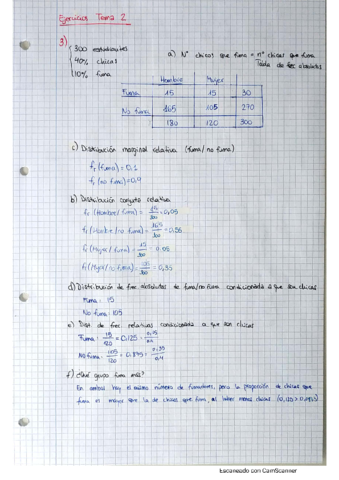 Ejercicios Tema 2
3) 300 estudiantes
40% chicas
10% fuma
a) Nº chicas que fuma = nº chicos que fuma
Tabla de frec absolutas
Hombre Mujer
Fuma 15 15 30
No fuma 165 105 270
180 120 300
c) Distribución marginal relativa (fuma/no fuma)
fr (fuma) = 0.1
fr (no fuma) = 0.9
b) Distribución conjunta relativa
fr (Hombre/fuma) = 15/300 = 0,05
fr (Hombre/no fuma) = 165/300 = 0,55
fr (Mujer/fuma) = 15/300 = 0.05
fr (Mujer/no fuma) = 105/300 = 0,35
d) Distribución de frec absolutas de fuma/no fuma condicionada a que son chicas
Fuma: 15
No fuma: 105
e) Dist. de frec relativas condicionada a que son chicas
Fuma: 15/120 = 0.125 = 0,05/0.4
No fuma: 105/120 = 0.875 = 0,35/0.4
f) ¿Qué grupo fuma más?
En ambos hay el mismo número de fumadores, pero la proporción de chicas que
fuma es mayor que la de chicos que fuma, al haber menos chicas
Escaneado con CamScanner